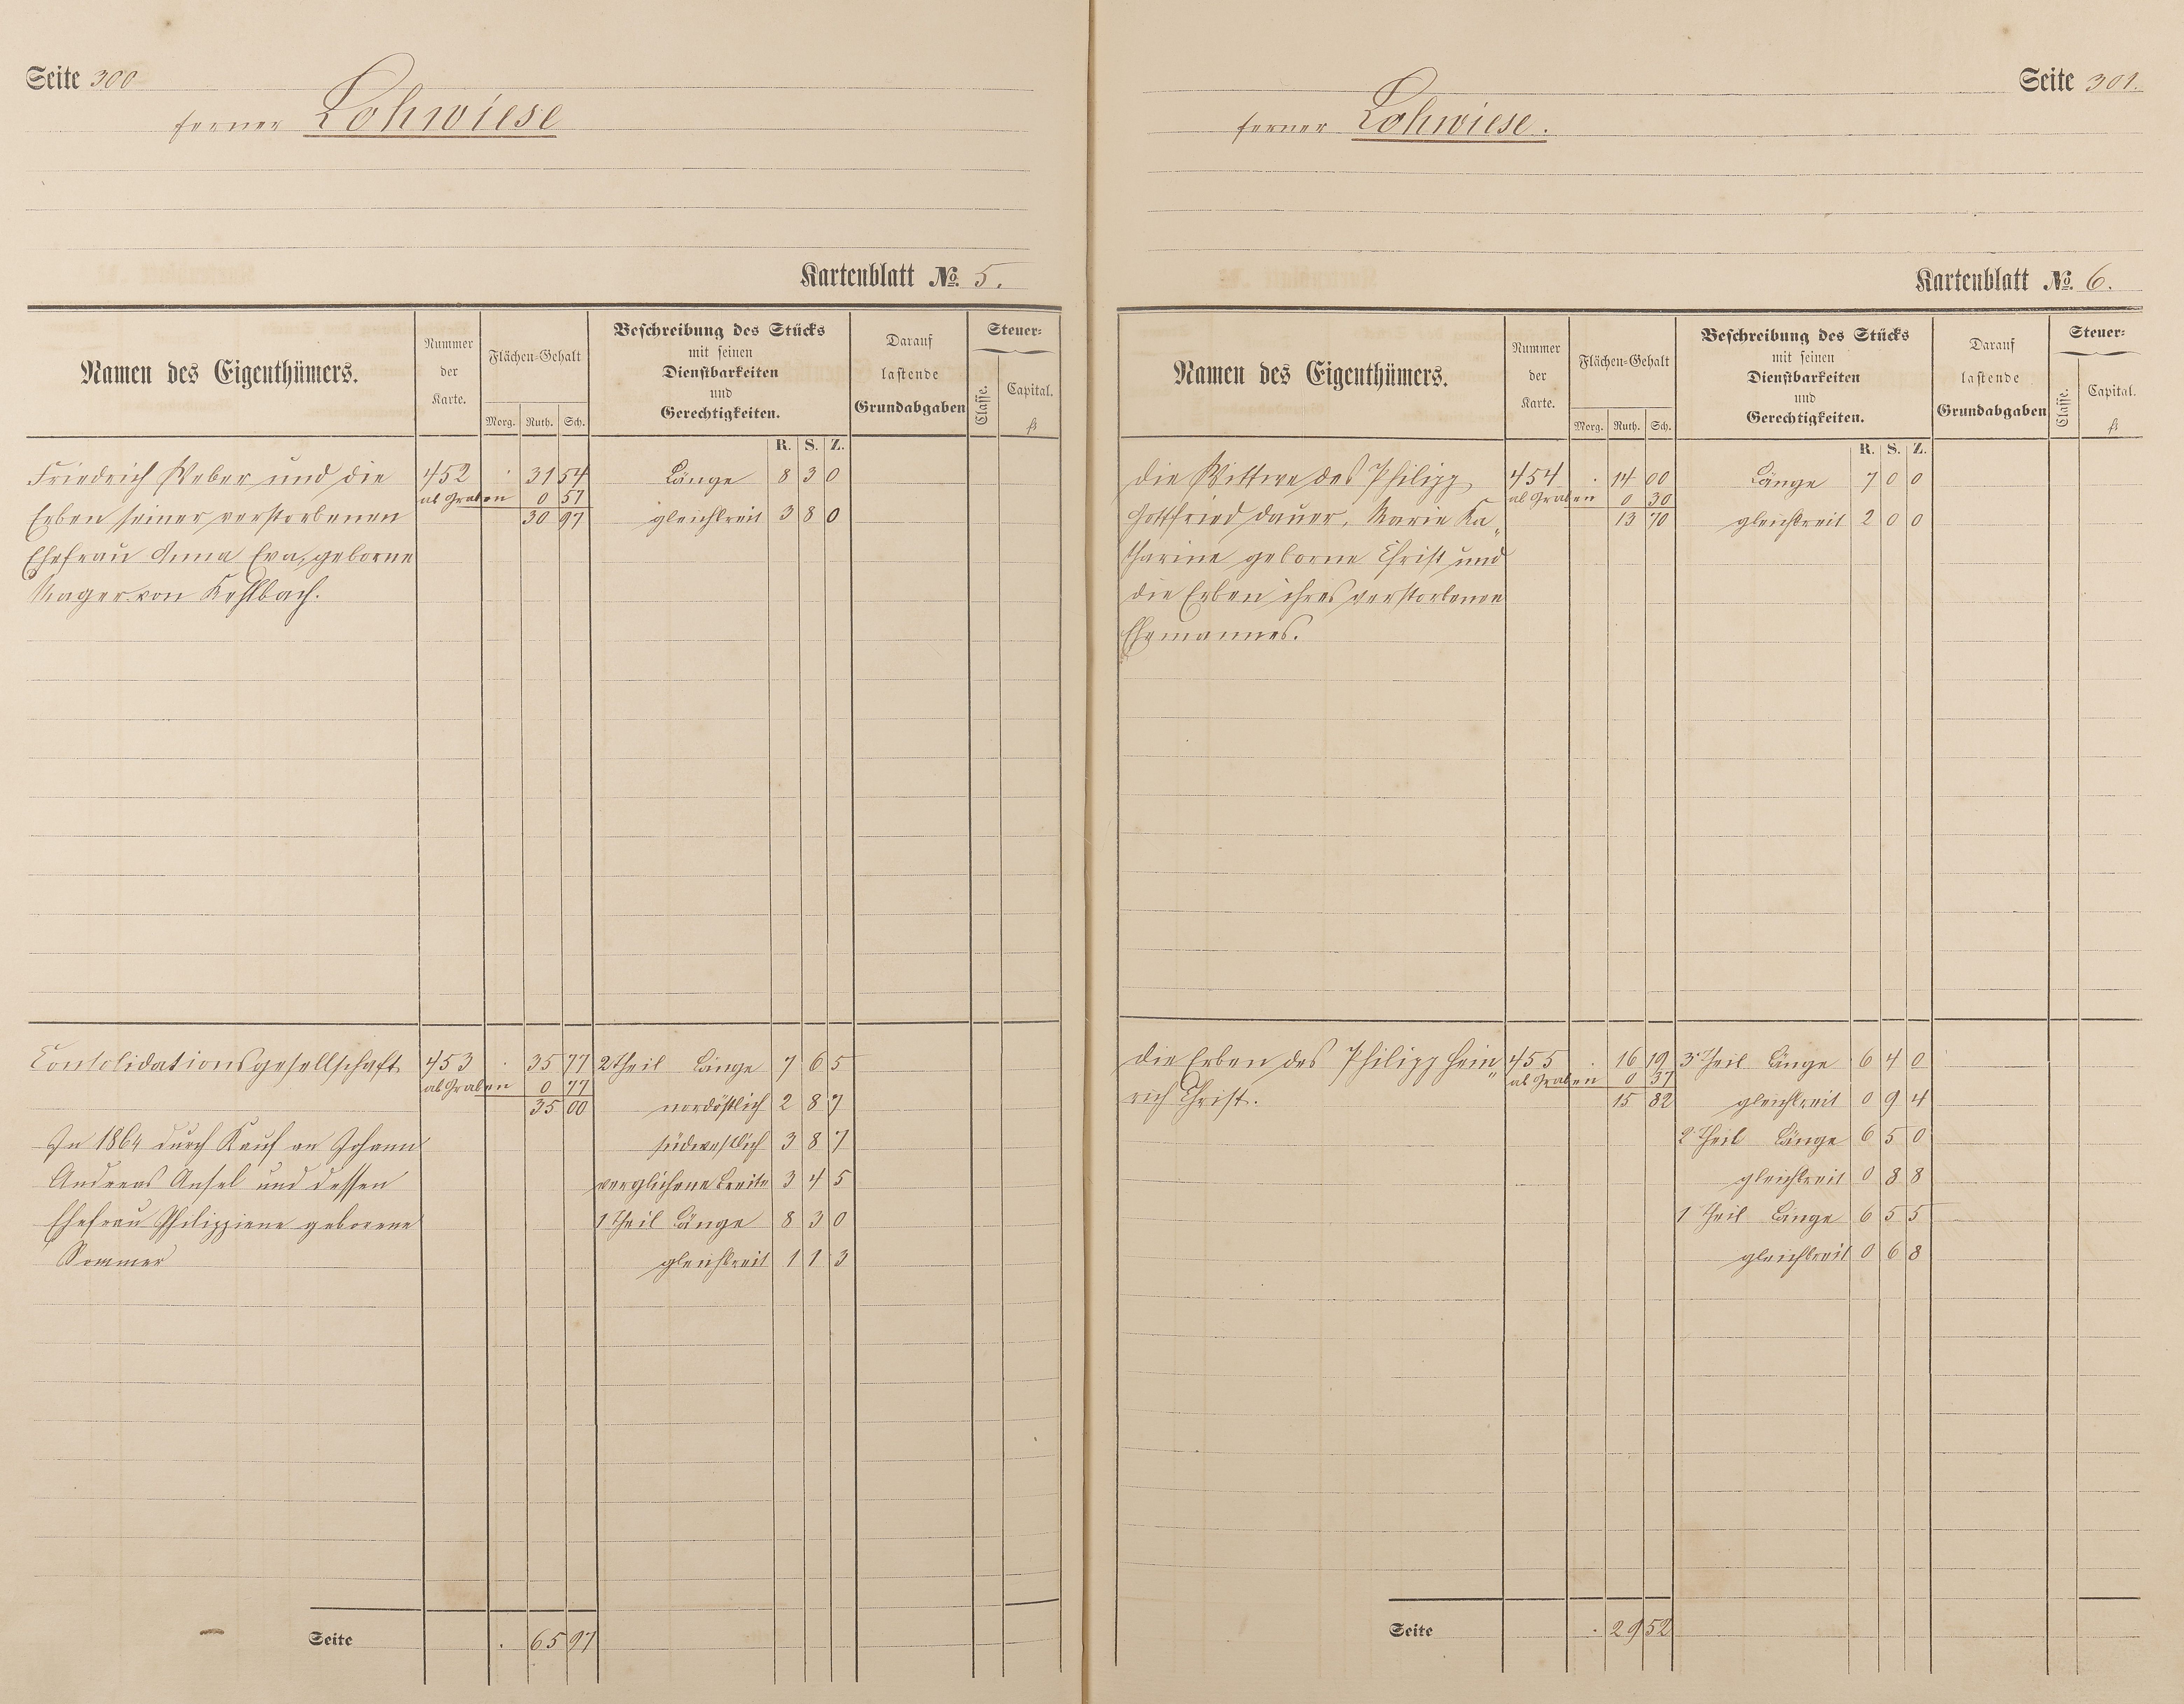 Seite 300
ferner Lohwiese
Kartenblatt No. 5.
Namen des Eigenthümers.
Nummer der Karte.
Flächen-Gehalt
Morg. Ruth. Sch.
Beschreibung des Stücks
mit seinen
Dienstbarkeiten
und
Gerechtigkeiten.
R. S. Z.
Darauf
lastende
Grundabgaben
Steuer-
Classe.
Capital.
fl
Friedrich Weber und die 452 . 31 54 Länge 8 3 0
ab Graben 0 57
Erben seiner verstorbenen 30 97 gleichbreit 3 8 0
Ehefrau Anna Eva, geborne
Mager von Kehlbach.
Consolidationsgesellschaft 453 . 35 77 2 Theil Länge 7 6 5
ab Graben 0 77
35 00 nordöstlich 2 8 7
In 1864 durch Kauf an Johann südwestlich 3 8 7
Andreas Ansel und dessen verglichene Breite 3 4 5
Ehefrau Philippiene geborene 1 Theil Länge 8 3 0
Sommer gleichbreit 1 1 3
Seite . 65 97
Seite 301.
ferner Lohwiese.
Kartenblatt No. 6.
Namen des Eigenthümers.
Nummer der Karte.
Flächen-Gehalt
Morg. Ruth. Sch.
Beschreibung des Stücks
mit seinen
Dienstbarkeiten
und
Gerechtigkeiten.
R. S. Z.
Darauf
lastende
Grundabgaben
Steuer-
Classe.
Capital.
fl
die Wittwe des Philipp 454 . 14 00 Länge 7 0 0
ab Graben 0 30
Gottfried Dauer, Marie Ka„ 13 70 gleichbreit 2 0 0
tharine geborne Christ und
die Erben ihres verstorbenen
Ehemannes.
die Erben des Philipp Hein„ 455 . 16 19 3r Theil Länge 6 4 0
ab Graben 0 37
rich Christ. 15 82 gleichbreit 0 9 4
2 Theil Länge 6 5 0
gleichbreit 0 8 8
1 Theil Länge 6 5 5
gleichbreit 0 6 8
Seite . 29 52